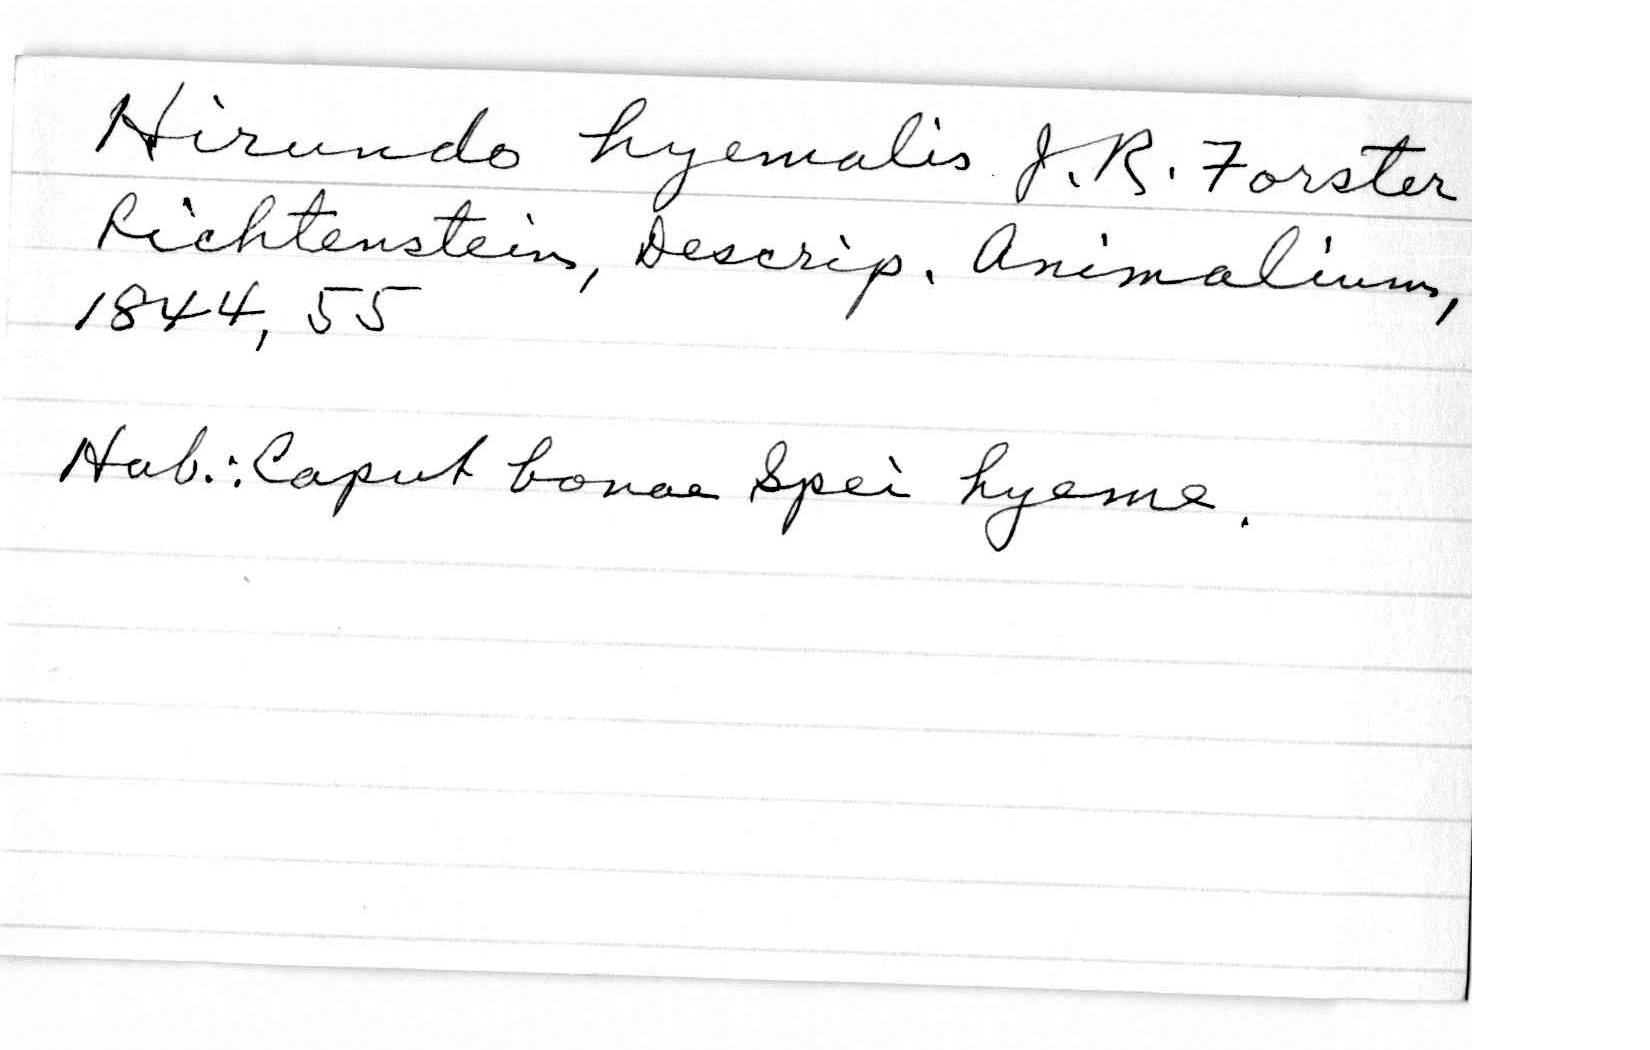 Hirundo hyemalis J. R. Forster
Lichtenstein, Descrip. Animalium,
1844, 55
Hab.: Caput bonae Spei hyeme.